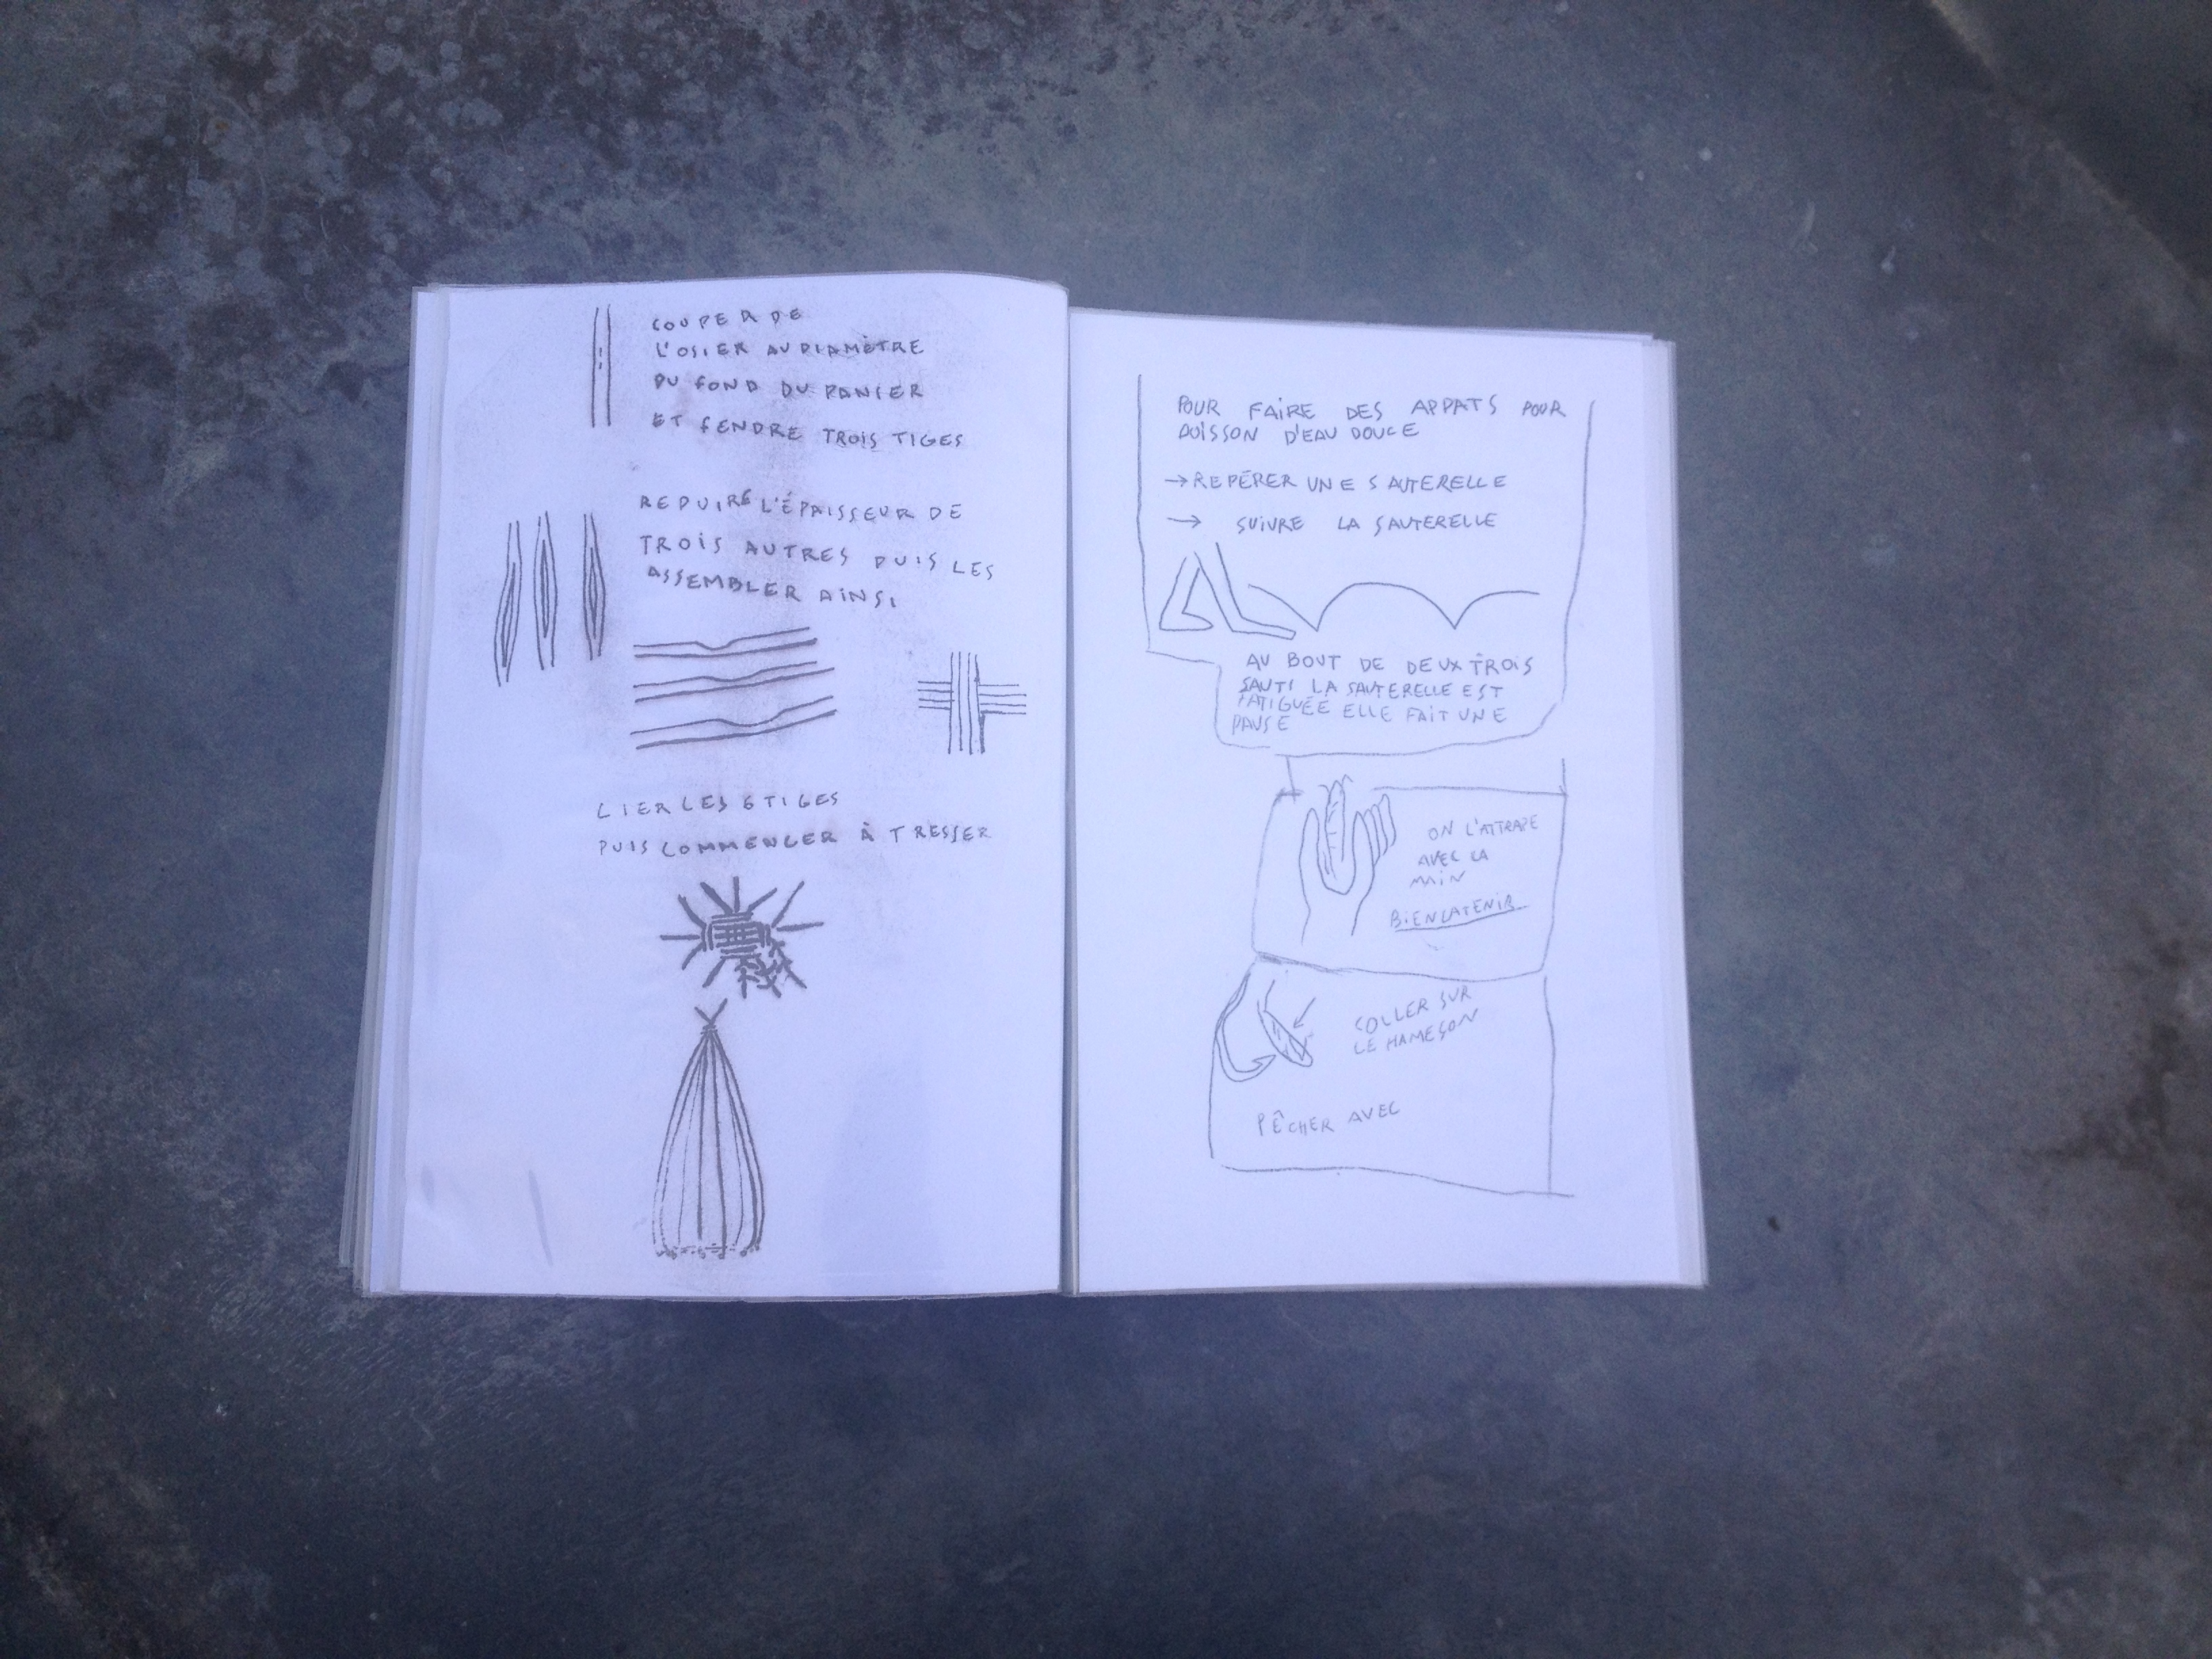 COUPER DE
L'OSIER AU DIAMÈTRE
DU FOND DU PANIER
ET FENDRE TROIS TIGES
REDUIRE L'ÉPAISSEUR DE
TROIS AUTRES PUIS LES
ASSEMBLER AINSI
LIER LES 6 TIGES
PUIS COMMENCER À TRESSER
POUR FAIRE DES APPATS POUR
POISSON D'EAU DOUCE
→ REPÉRER UNE SAUTERELLE
→ SUIVRE LA SAUTERELLE
AU BOUT DE DEUX TROIS
SAUTS LA SAUTERELLE EST
FATIGUÉE ELLE FAIT UNE
PAUSE
ON L'ATTRAPE
AVEC LA
MAIN
BIEN LA TENIR
COLLER SUR
LE HAMEÇON
PÊCHER AVEC